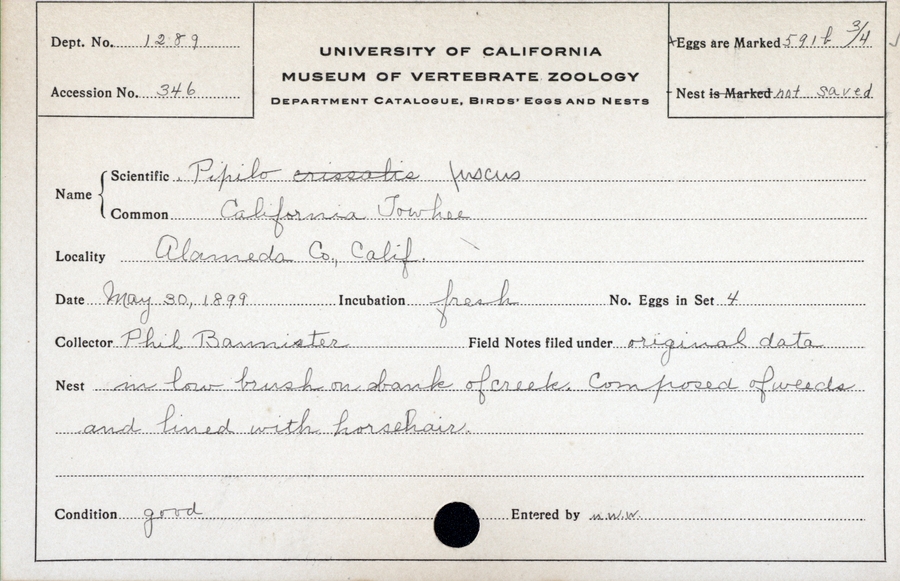 Dept. No. 1289
Accession No. 346
UNIVERSITY OF CALIFORNIA
MUSEUM OF VERTEBRATE ZOOLOGY
DEPARTMENT CATALOGUE, BIRDS' EGGS AND NESTS
Eggs are Marked 591b 3/4
Nest is Marked not saved
Name
Scientific Pipilo crissalis fuscus
Common California Towhee
Locality Alameda Co., Calif.
Date May 30, 1899 Incubation fresh No. Eggs in Set 4
Collector Phil Bannister Field Notes filed under original data
Nest in low brush on bank of creek. Composed of weeds
and lined with horsehair.
Condition good Entered by